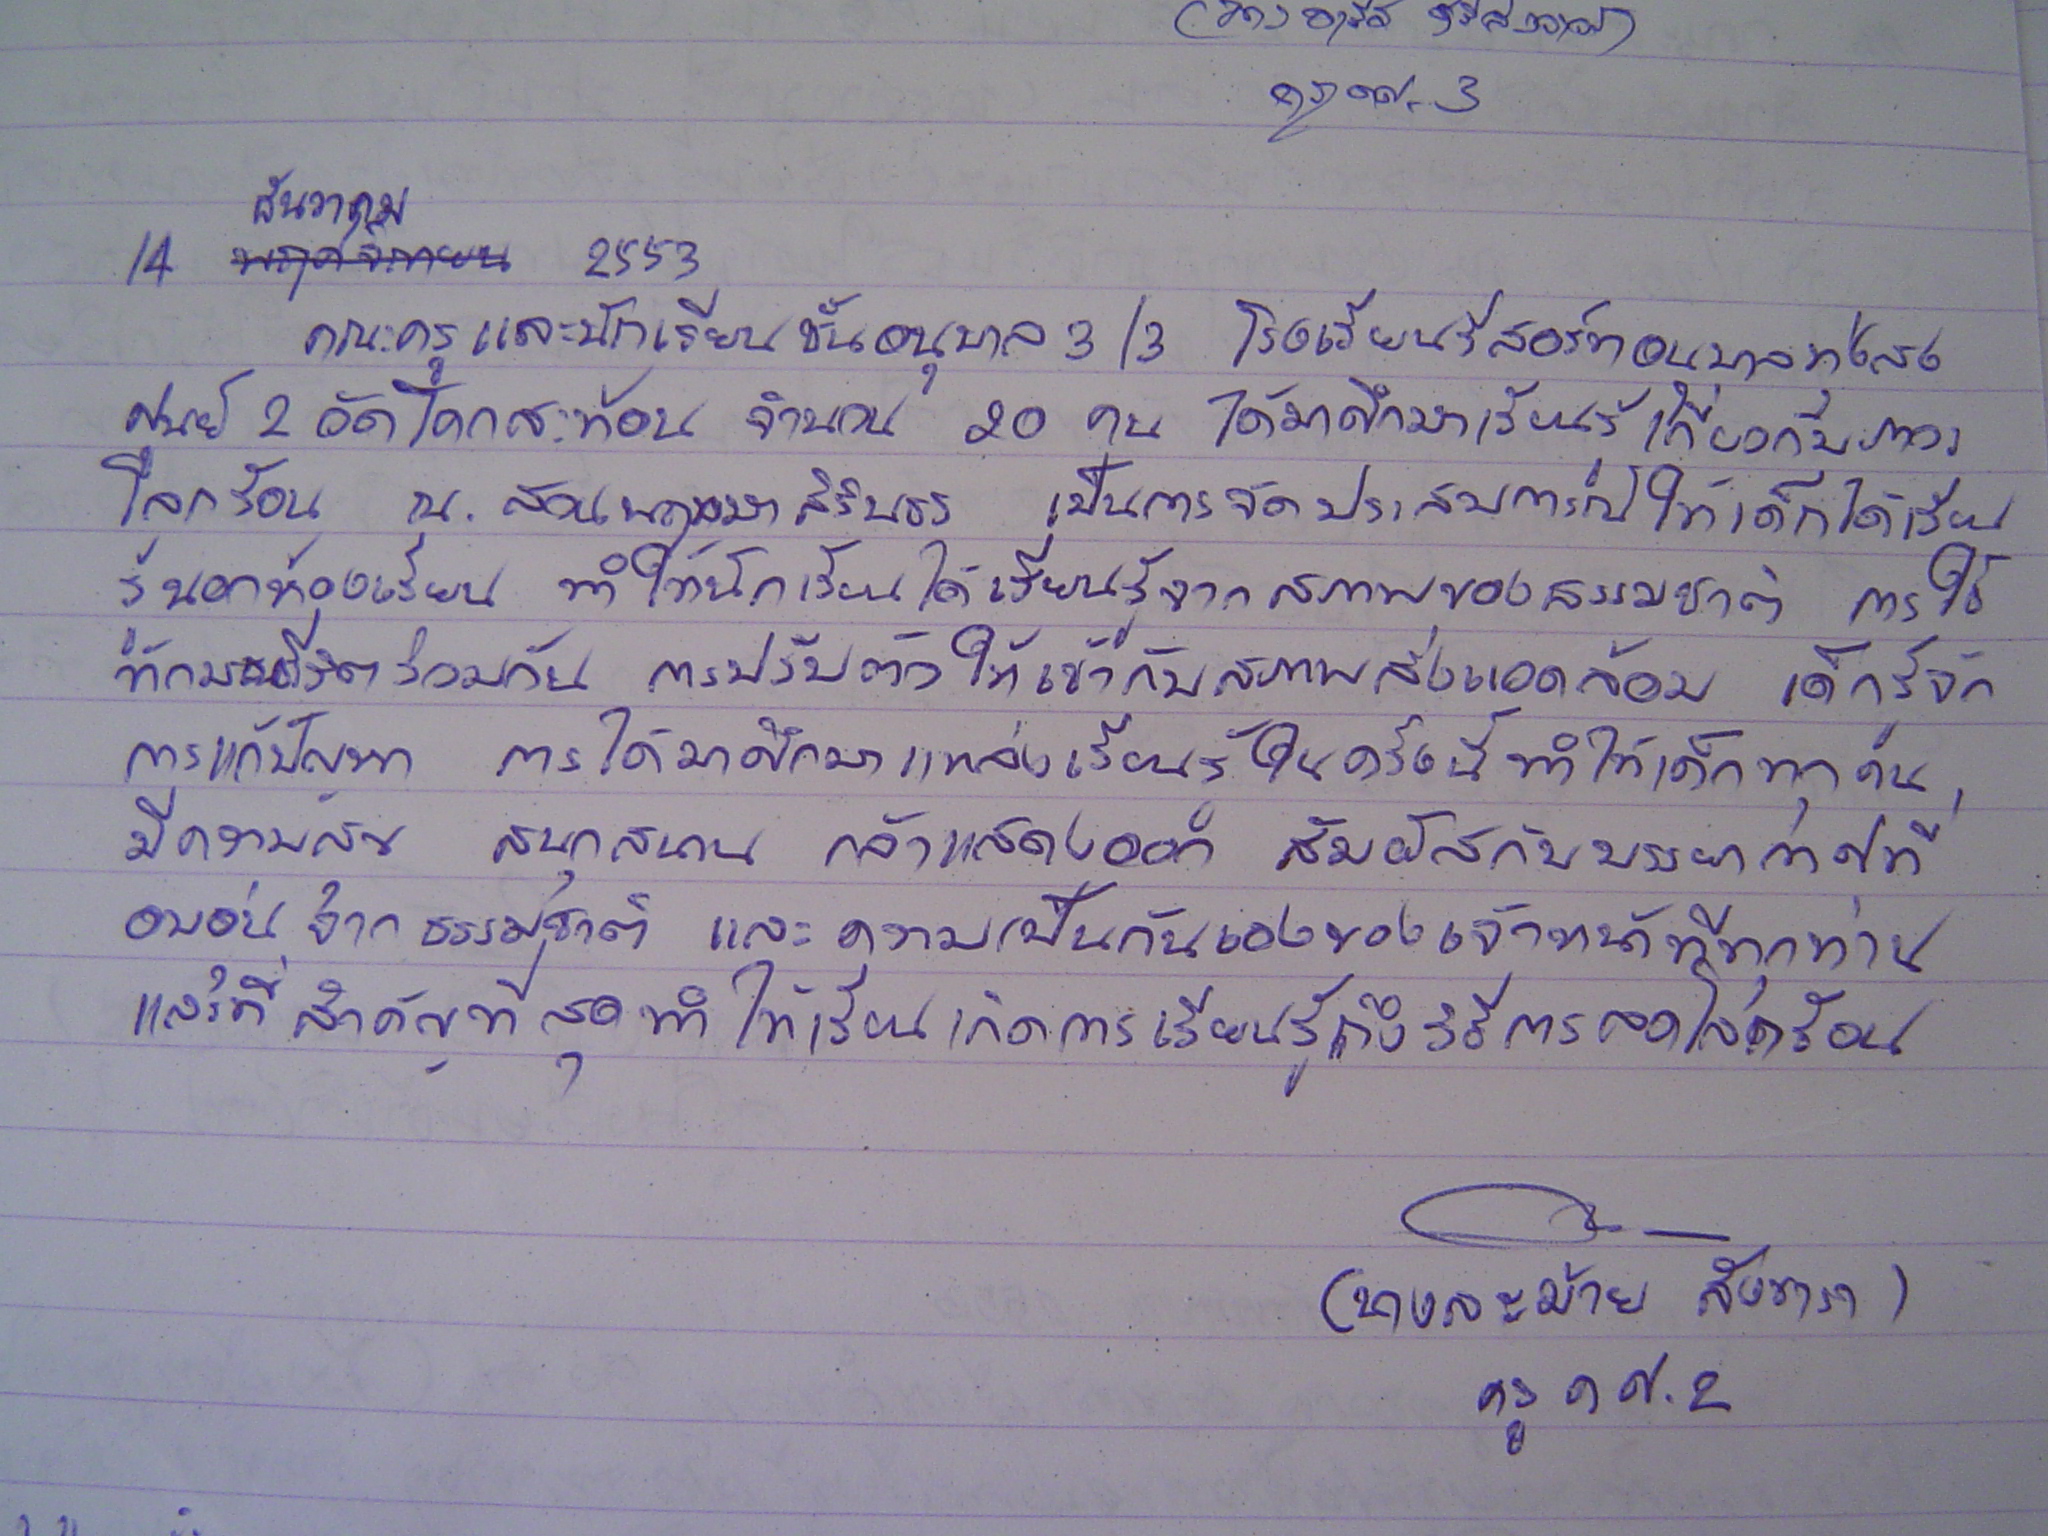 ครู คศ. 3
ธันวาคม
14 พฤศจิกายน 2553
คณะครูและนักเรียนชั้นอนุบาล 3/3 โรงเรียนรีสอร์ทอนุบาลทุ่งสง
ศูนย์ 2 วัดโคกสะท้อน จำนวน 20 คน ได้มาศึกษาเรียนรู้เกี่ยวกับภาวะ
โลกร้อน ณ. สวนพฤกษาสิรินธร เป็นการจัดประสบการณ์ให้เด็กได้เรียน
รู้นอกห้องเรียน ทำให้นักเรียนได้เรียนรู้จากสภาพของธรรมชาติ การใช้
ทักษะชีวิตร่วมกัน การปรับตัวให้เข้ากับสภาพสิ่งแวดล้อม เด็กรู้จัก
การแก้ปัญหา การได้มาศึกษาแหล่งเรียนรู้ในครั้งนี้ทำให้เด็กทุกคน
มีความสุข สนุกสนาน กล้าแสดงออก สัมผัสกับบรรยากาศที่
อบอุ่นจากธรรมชาติ และความเป็นกันเองของเจ้าหน้าที่ทุกท่าน
และที่สำคัญที่สุดทำให้เรียนเกิดการเรียนรู้ถึงวิธีการลดโลกร้อน
(นางละม้าย สังขารา)
ครู คศ. 2